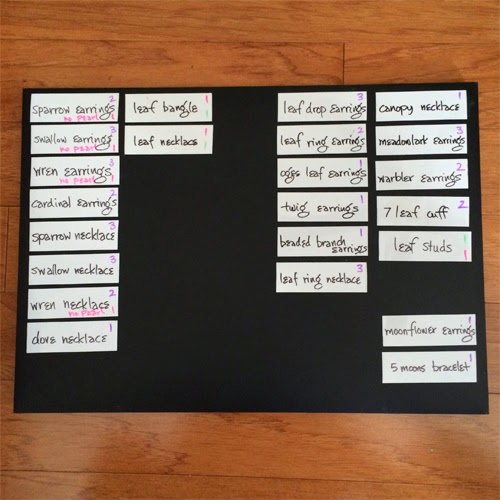 2
sparrow earrings
no pearl 1
3
swallow earrings
no pearl 1
3
wren earrings
no pearl 1
2
cardinal earrings
3
sparrow necklace
3
swallow necklace
2
wren necklace
no pearl 1
1
dove necklace
1
leaf bangle
1
1
leaf necklace
1
3
leaf drop earrings
2
leaf ring earrings
1
ogee leaf earrings
1
twig earrings
1
beaded branch
earrings
3
leaf ring necklace
1
canopy necklace
3
meadowlark earrings
2
warbler earrings
2
7 leaf cuff
1
leaf studs
1
1
moonflower earrings
1
5 moons bracelet